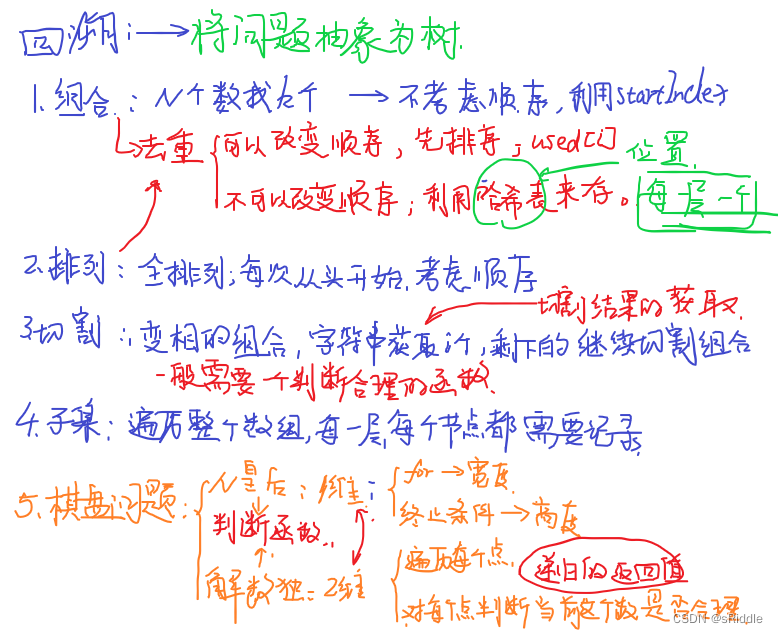 回溯：→将问题抽象为树.
1.组合：N个数找k个 → 不考虑顺序，利用startIndex
去重 可以改变顺序，先排序；used[i] 位置.
不可以改变顺序；利用哈希表来存。每一层一个
2.排列：全排列；每次从头开始.考虑顺序
切割结果的获取.
3切割：变相的组合，字符串获取i个，剩下的继续切割组合
一般需要一个判断合理的函数.
4.子集：遍历整个数组，每一层，每个节点都需要记录.
5.棋盘问题： N皇后：1维： for→宽度.
判断函数. 终止条件→高度
解数独：2维 遍历每个点. 递归的返回值
对每个点判断当前这个数是否合理.
CSDN @sRiddle